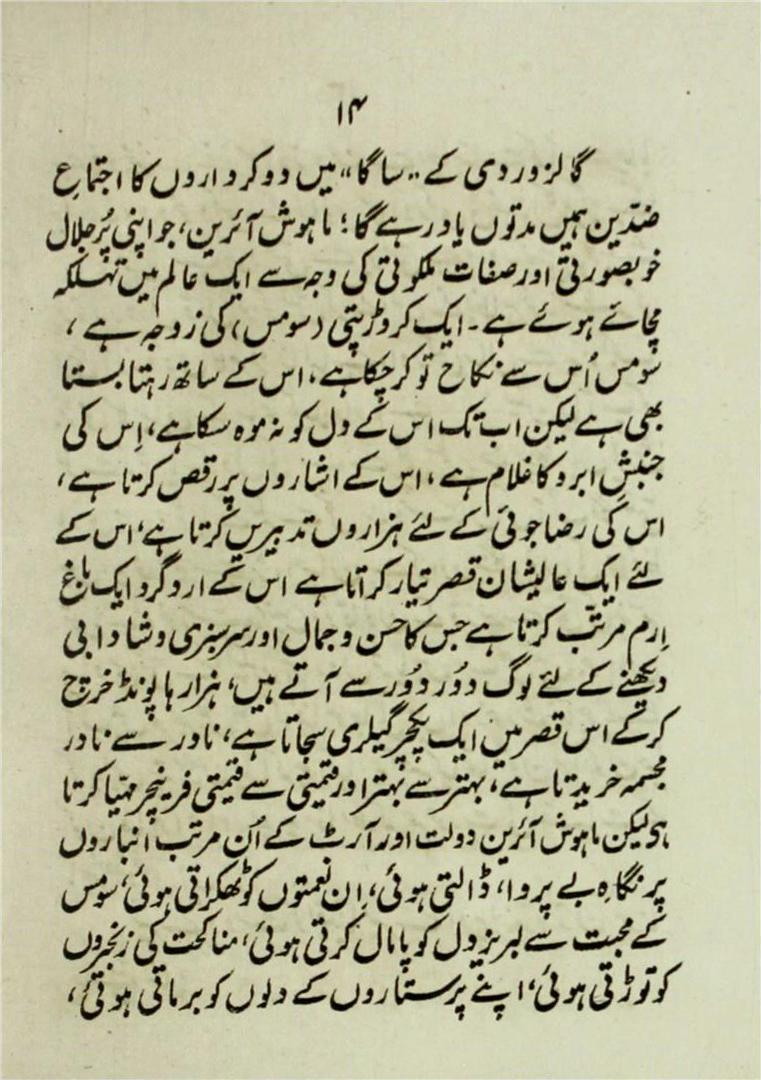 ۱۴
گالزوردی کے "ساگا" میں دو کرداروں کا اجتماعِ
ضدّین ہمیں مدتوں یاد رہے گا؛ ماہوش آئرین، جو اپنی پُر جلال
خوبصورتی اور صفات ملکوتی کی وجہ سے ایک عالم میں تہلکہ
مچائے ہوئے ہے۔ ایک کروڑپتی (سومس) کی زوجہ ہے،
سومس اُس سے نکاح تو کر چکا ہے، اس کے ساتھ رہتا بستا
بھی ہے لیکن اب تک اس کے دل کو نہ موہ سکا ہے، اِس کی
جنبشِ ابرو کا غلام ہے، اس کے اشاروں پر رقص کرتا ہے،
اس کی رضا جوئی کے لئے ہزاروں تدبیریں کرتا ہے، اس کے
لئے ایک عالیشان قصر تیار کراتا ہے اس کے اردگرد ایک باغِ
اِرم مرتّب کرتا ہے جس کا حسن و جمال اور سرسبزی و شادابی
دیکھنے کے لئے لوگ دُور دُور سے آتے ہیں، ہزارہا پونڈ خرچ
کرکے اس قصر میں ایک پکچر گیلری سجاتا ہے، نادر سے نادر
مجسمہ خریدتا ہے، بہتر سے بہتر اور قیمتی سے قیمتی فرنیچر مہیّا کرتا
ہی لیکن ماہوش آئرین دولت اور آرٹ کے اُن مرتب انباروں
پر نگاہِ بے پروا، ڈالتی ہوئی، اِن نعمتوں کو ٹھکراتی ہوئی، سومس
کے محبت سے لبریز دل کو پامال کرتی ہوئی، مناکحت کی زنجیروں
کو توڑتی ہوئی، اپنے پرستاروں کے دلوں کو برماتی ہوئی،